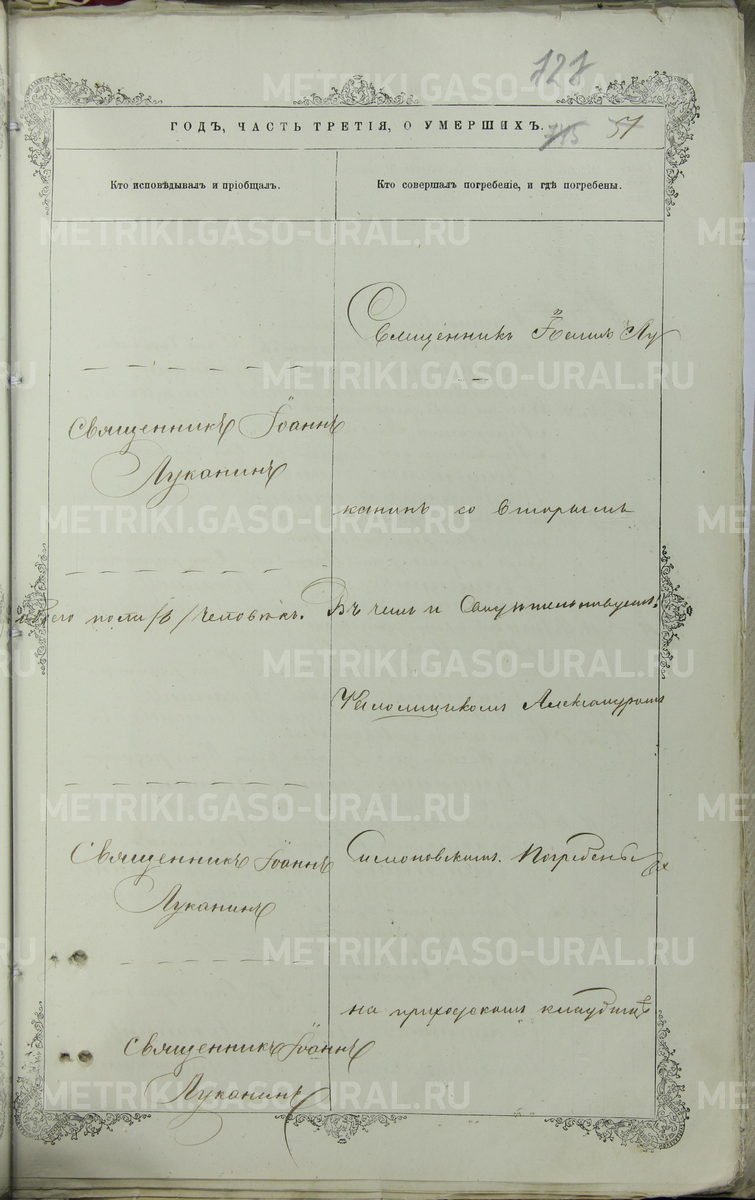 727
ГОДЪ, ЧАСТЬ ТРЕТІЯ, О УМЕРШИХЪ.
745 51
Кто исповѣдывалъ и пріобщалъ.
Кто совершалъ погребеніе, и гдѣ погребены.
Священникъ Іоаннъ Лу
Священникъ Іоаннъ
Луканинъ
канинъ со вторымъ
его пола /6/ человѣкъ.
Въ чемъ и
Псаломщикомъ Александромъ
Священникъ Іоаннъ
Луканинъ
Симоновскимъ. Погребены
на приходскомъ кладбищѣ
Священникъ Іоаннъ
Луканинъ
METRIKI.GASO-URAL.RU